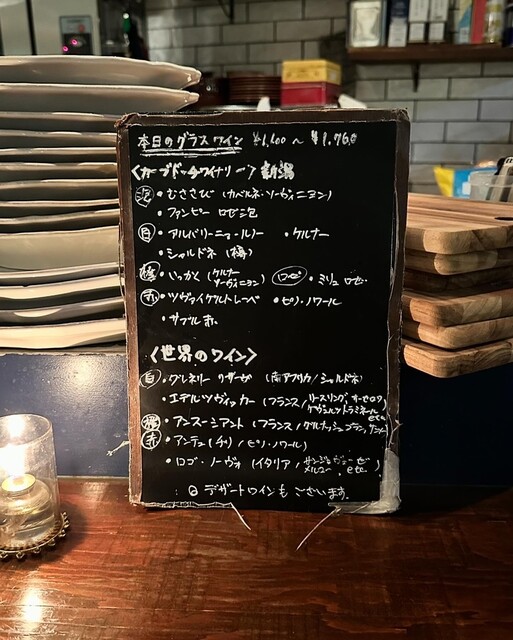 本日のグラスワイン ¥1,400 ~ ¥1,760
〈カーブドッチワイナリー〉新潟
泡 ・むささび (カベルネ・ソーヴィニヨン)
・ファンピー ロゼ泡
白 ・アルバリーニョ ・ケルナー
・シャルドネ (樽)
橙 ・いっかく (ケルナー ソーヴィニヨン) ロゼ ・ミリュ ロゼ
赤 ・ツヴァイゲルトレーベ ・ピノ・ノワール
・サブル 赤
〈世界のワイン〉
白 ・グレネリー (南アフリカ/シャルドネ)
・エデルツヴィッカー (フランス/リースリング
ゲヴュルツトラミネール etc
橙 ・アンスーシアント (フランス/グルナッシュブラン
赤 ・アンティ (チリ/ピノ・ノワール)
・ロゴ・ノーヴォ (イタリア/サンジョヴェーゼ
メルロー etc.)
デザートワインもございます。